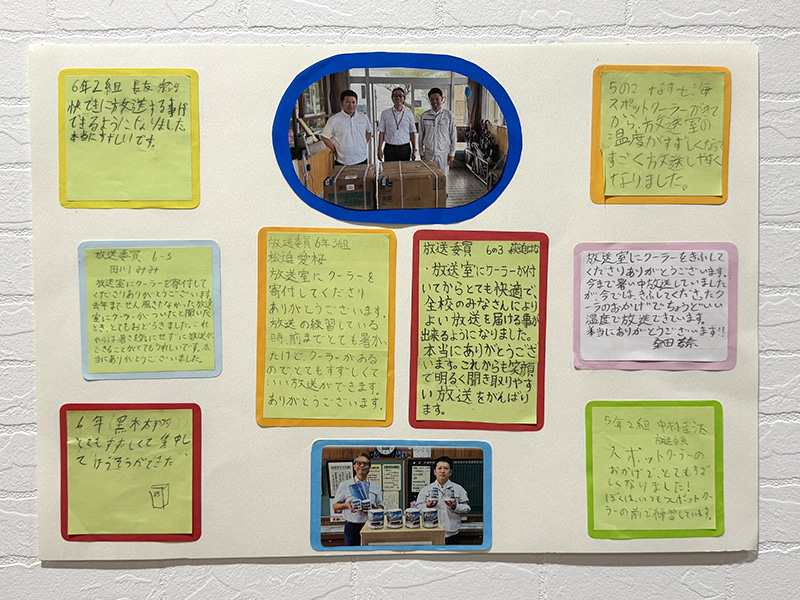 6年2組 長友
快てきに放送する事が
できるようになりました
本当にすずしいです。
5の2 なす七海
スポットクーラーがきて
から、放送室の
温度がすずしくなって
すごく放送しやすく
なりました。
放送委員 6-3
田川 みみ
放送室にクーラーを寄付して
くださりありがとうございます
去年までせん風きだった放送
室にクーラーがついたと聞いた
とき、とてもおどろきました。これ
からは暑さを気にせずに放送が
できることがとてもうれしいです。本
当にありがとうございました。
放送委員 6年3組
松迫 愛桜
放送室にクーラーを
寄付してくださり
ありがとうございます。
放送の練習している
時、前までとても暑か
たけど、クーラーがある
のでとてもすずしくて
いい放送ができます。
ありがとうございます。
放送委員 6の3 萩迫はな
・放送室にクーラーが付
いてからとても快適で、
全校のみなさんにより
よい放送を届ける事が
出来るようになりました。
本当にありがとうござ
います。これからも笑顔
で明るく聞き取りやす
い放送をがんばり
ます。
放送室にクーラーをきふして
くださりありがとうございます。
今まで暑い中放送していました
が今では、きふしてくださったクー
ラーのおかげでちょうどいい
温度で放送できています。
本当にありがとうございます!!
6年 黒木
とてもすずしくて集中し
てほうそうができた。
5年2組 中村
放送委員
スポットクーラーの
おかげで、とてもすず
しくなりました!
ぼくは、いつもスポットクー
ラーの前で練習しています。